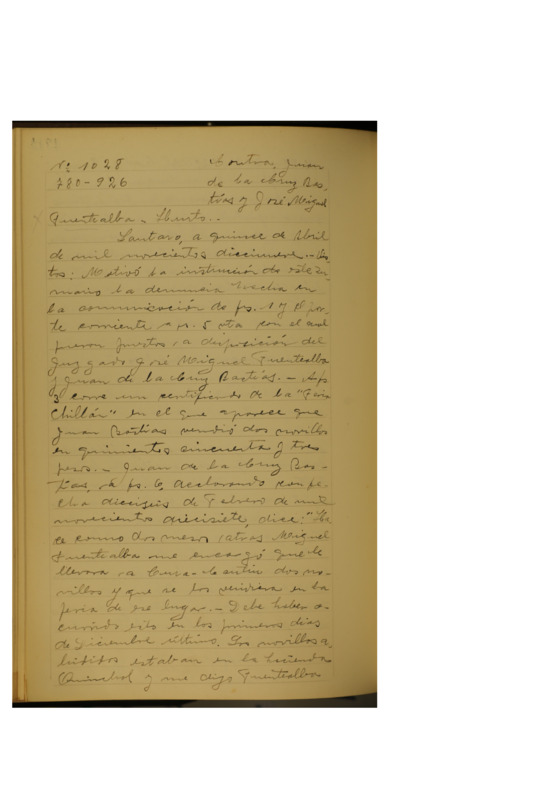 Nº 1028 Contra Juan
780-926 de la Cruz Bas-
tías y José Miguel
Fuentealba. Hurto..
Lautaro, a quince de Abril
de mil novecientos diecinueve.- Vis-
tos: Motivó la instrucción de este su-
mario la denuncia hecha en
la comunicación de fs. 1 y el par-
te corriente a fs. 5 vta con el cual
fueron puestos a disposición del
Juzgado José Miguel Fuentealba
y Juan de la Cruz Bastías. - A fs
3 corre un certificado de la "Feria
Chillán" en el que aparece que
Juan Bastías vendió dos novillos
en quinientos cincuenta y tres
pesos. - Juan de la Cruz Bas-
tías, a fs. 6, declarando con fe-
cha dieciseis de Febrero de mil
novecientos diecisiete, dice: "Ha-
ce como dos meses atras Miguel
Fuentealba me encargó que le
llevara a Cura-Cautín dos no-
villos y que se los vendiera en la
feria de ese lugar. - Debe haber o-
currido esto en los primeros días
de Diciembre último. Los novillos a-
ludidos estaban en la hacienda
y me dijo Fuentealba